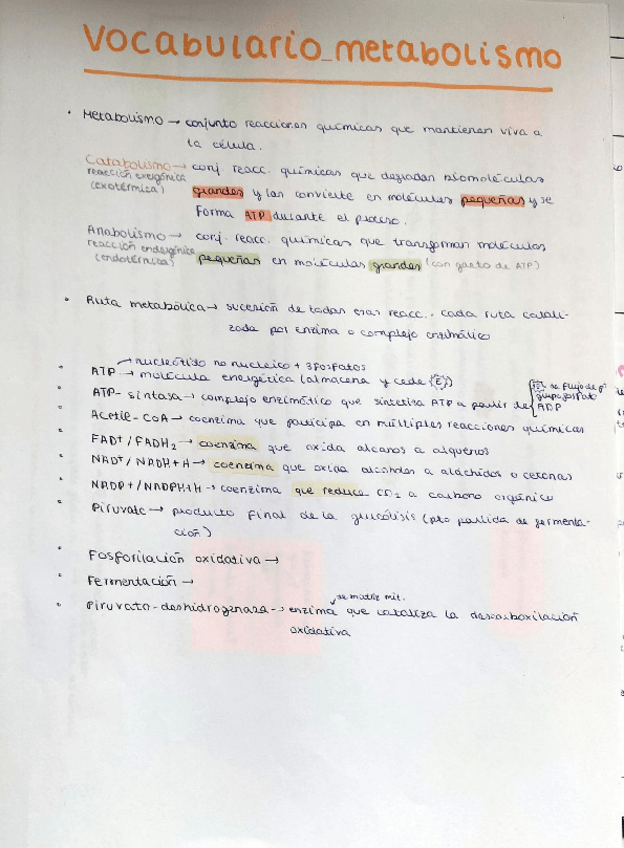 Vocabulario_metabolismo
• Metabolismo → conjunto reacciones químicas que mantienen viva a
la célula.
Catabolismo → conj. reacc. químicas que degradan biomoléculas
reacción exergónica
(exotérmica) grandes y las convierte en moléculas pequeñas y se
forma ATP durante el proceso.
Anabolismo → conj. reacc. químicas que transforman moléculas
reacción endergónica
(endotérmica) pequeñas en moléculas grandes (con gasto de ATP)
• Ruta metabólica → sucesión de todas esas reacc.. cada ruta catali-
zada por enzima o complejo enzimático
→ nucleótido no nucleico + 3 fosfatos
• ATP → molécula energética (almacena y cede (E))
• ATP-sintasa → complejo enzimático que sintetiza ATP a partir de ADP
se flujo de
grupo fosfato
• Acetil-CoA → coenzima que participa en múltiples reacciones químicas
• FAD+/FADH2 → coenzima que oxida alcanos a alquenos
• NAD+/NADH+H → coenzima que oxida alcoholes a aldehidos o cetonas
• NADP+/NADPH+H → coenzima que reduce CO2 a carbono orgánico
• Piruvato → producto final de la glucólisis (pto partida de fermenta-
ción)
• Fosforilación oxidativa →
• Fermentación →
se matriz mit.
• Piruvato-deshidrogenasa → enzima que cataliza la descarboxilación
oxidativa